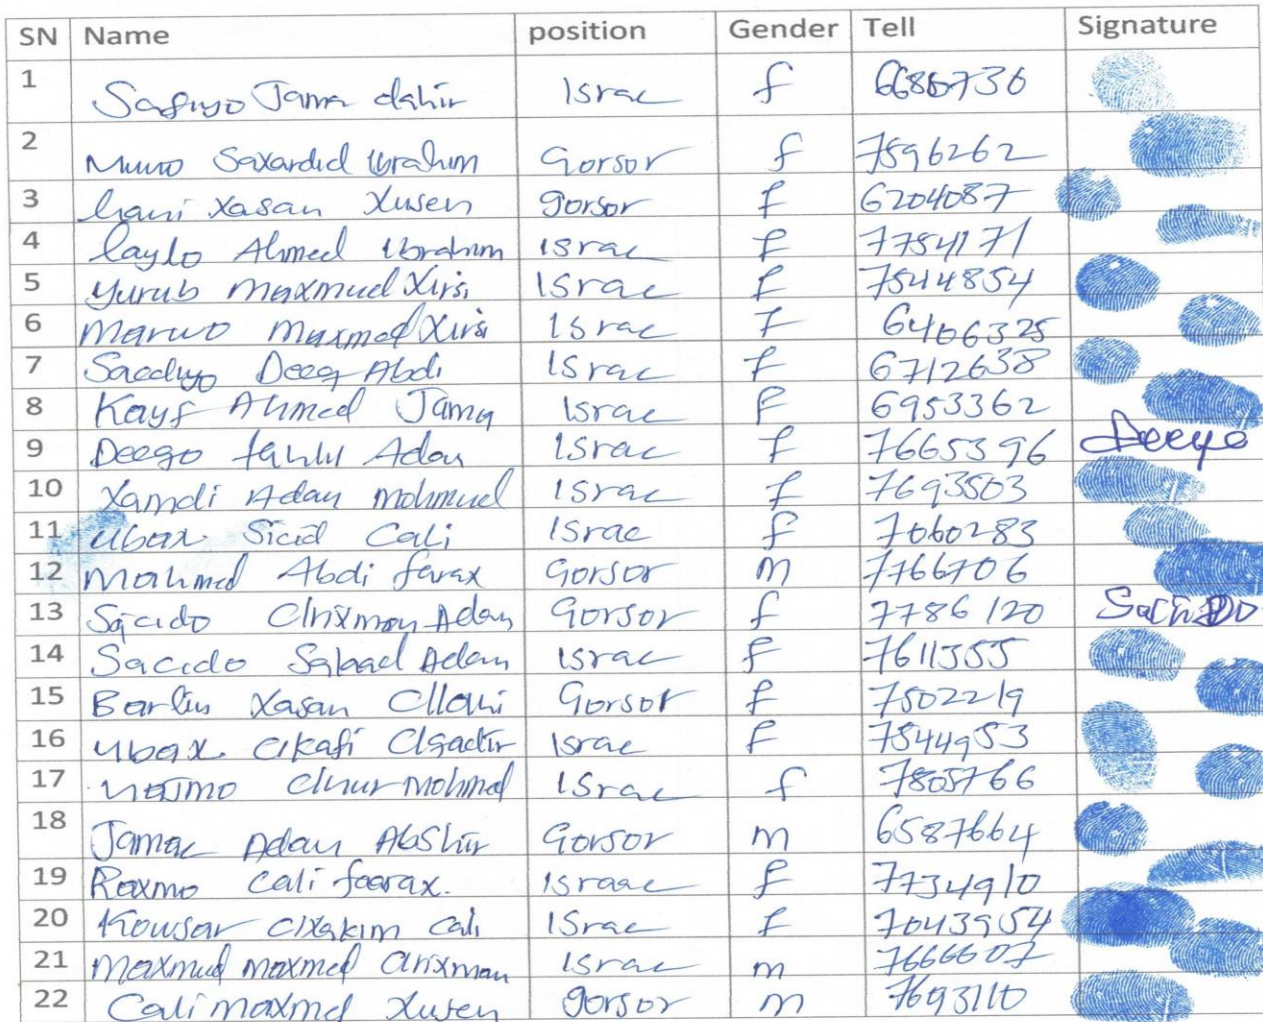 SN Name position Gender Tell Signature
1 Safiyo Jama dahir Israc f 6686730
2 Muno Saxardid Ibrahim Gorsor f 7596262
3 hani Xasan Xusen gorsor f 6204087
4 laylo Ahmed Ibrahim Israc f 7754171
5 Yurub maxmud Xirsi Israc f 7544854
6 Marwo maxmed Xirsi Israc f 6406325
7 Saediyo Deeq Abdi Israc f 6712638
8 Kayf Ahmed Jama Israc F 6953362
9 Deeqo Adan Israc f 7665396 Deeqo
10 Xamdi Adan mohmud Israc f 7693503
11 Ubax Sicid Cali Israc f 7060283
12 Mohmed Abdi farax Gorsor m 7766706
13 Sacido C/rixmon Adan Gorsor f 7786120
14 Sacido Adan Israc f 7611355
15 Barlin Xasan C/lahi Gorsor f 7502219
16 Ubax C/kafi C/qadir Israc F 7544953
17 C/nur Mohmed Israc f 7805766
18 Jamac Adan Abshir Gorsor m 6587664
19 Raxmo Cali faarax. Israac f 7734910
20 Kowsar C/xakim Cali Israc f 7043954
21 Maxmud maxmed C/rixman Israc m 7666607
22 Cali maxmed Xusen gorsor m 7693110